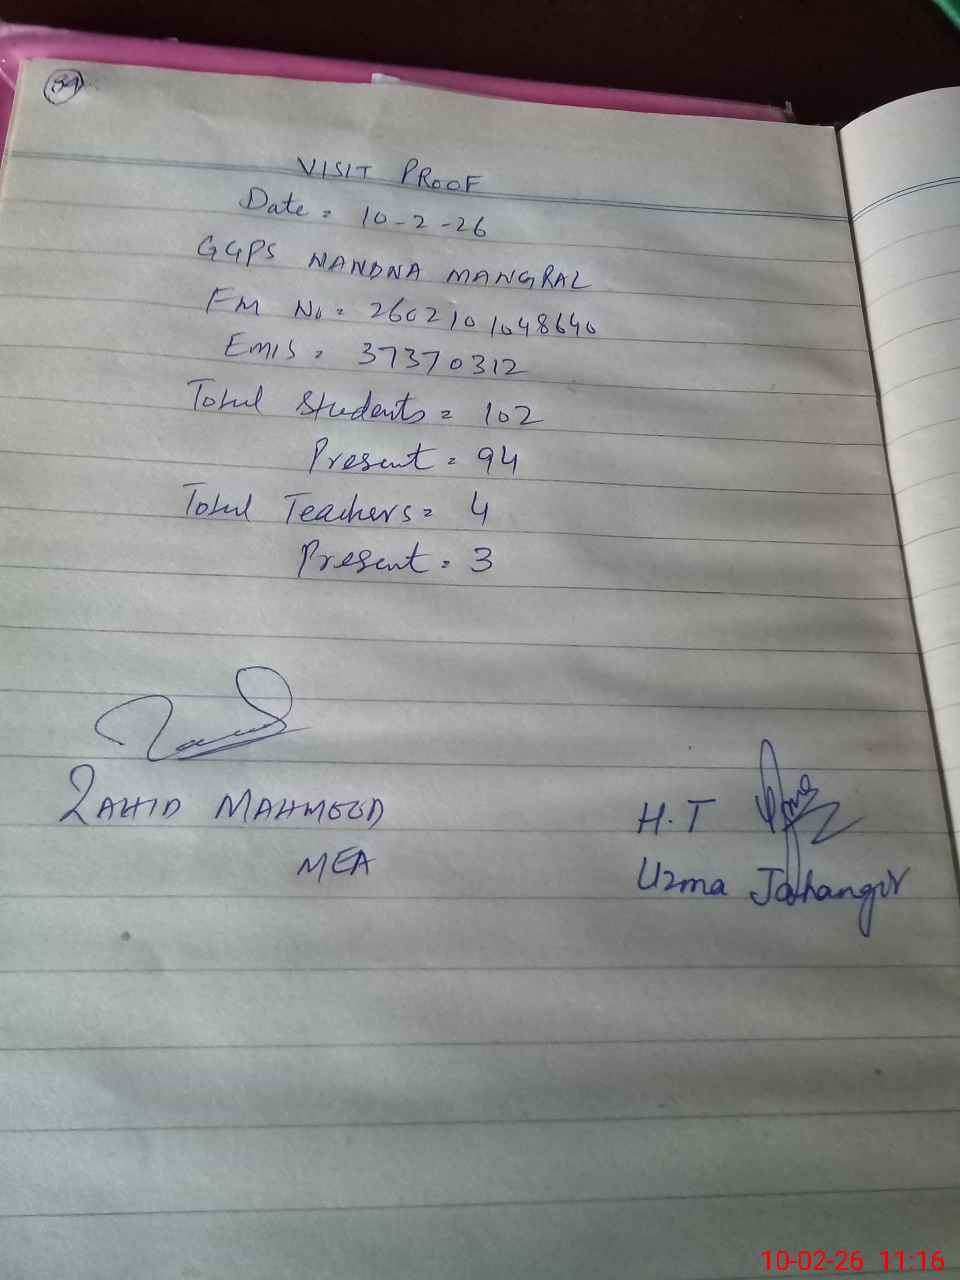 39
VISIT PROOF
Date = 10-2-26
GGPS NANDNA MANGRAL
FM No = 2602101048640
EMIS = 37370312
Total Students = 102
Present = 94
Total Teachers = 4
Present = 3
ZAHID MAHMOOD
MEA
H.T
Uzma Jahangir
10-02-26 11:16